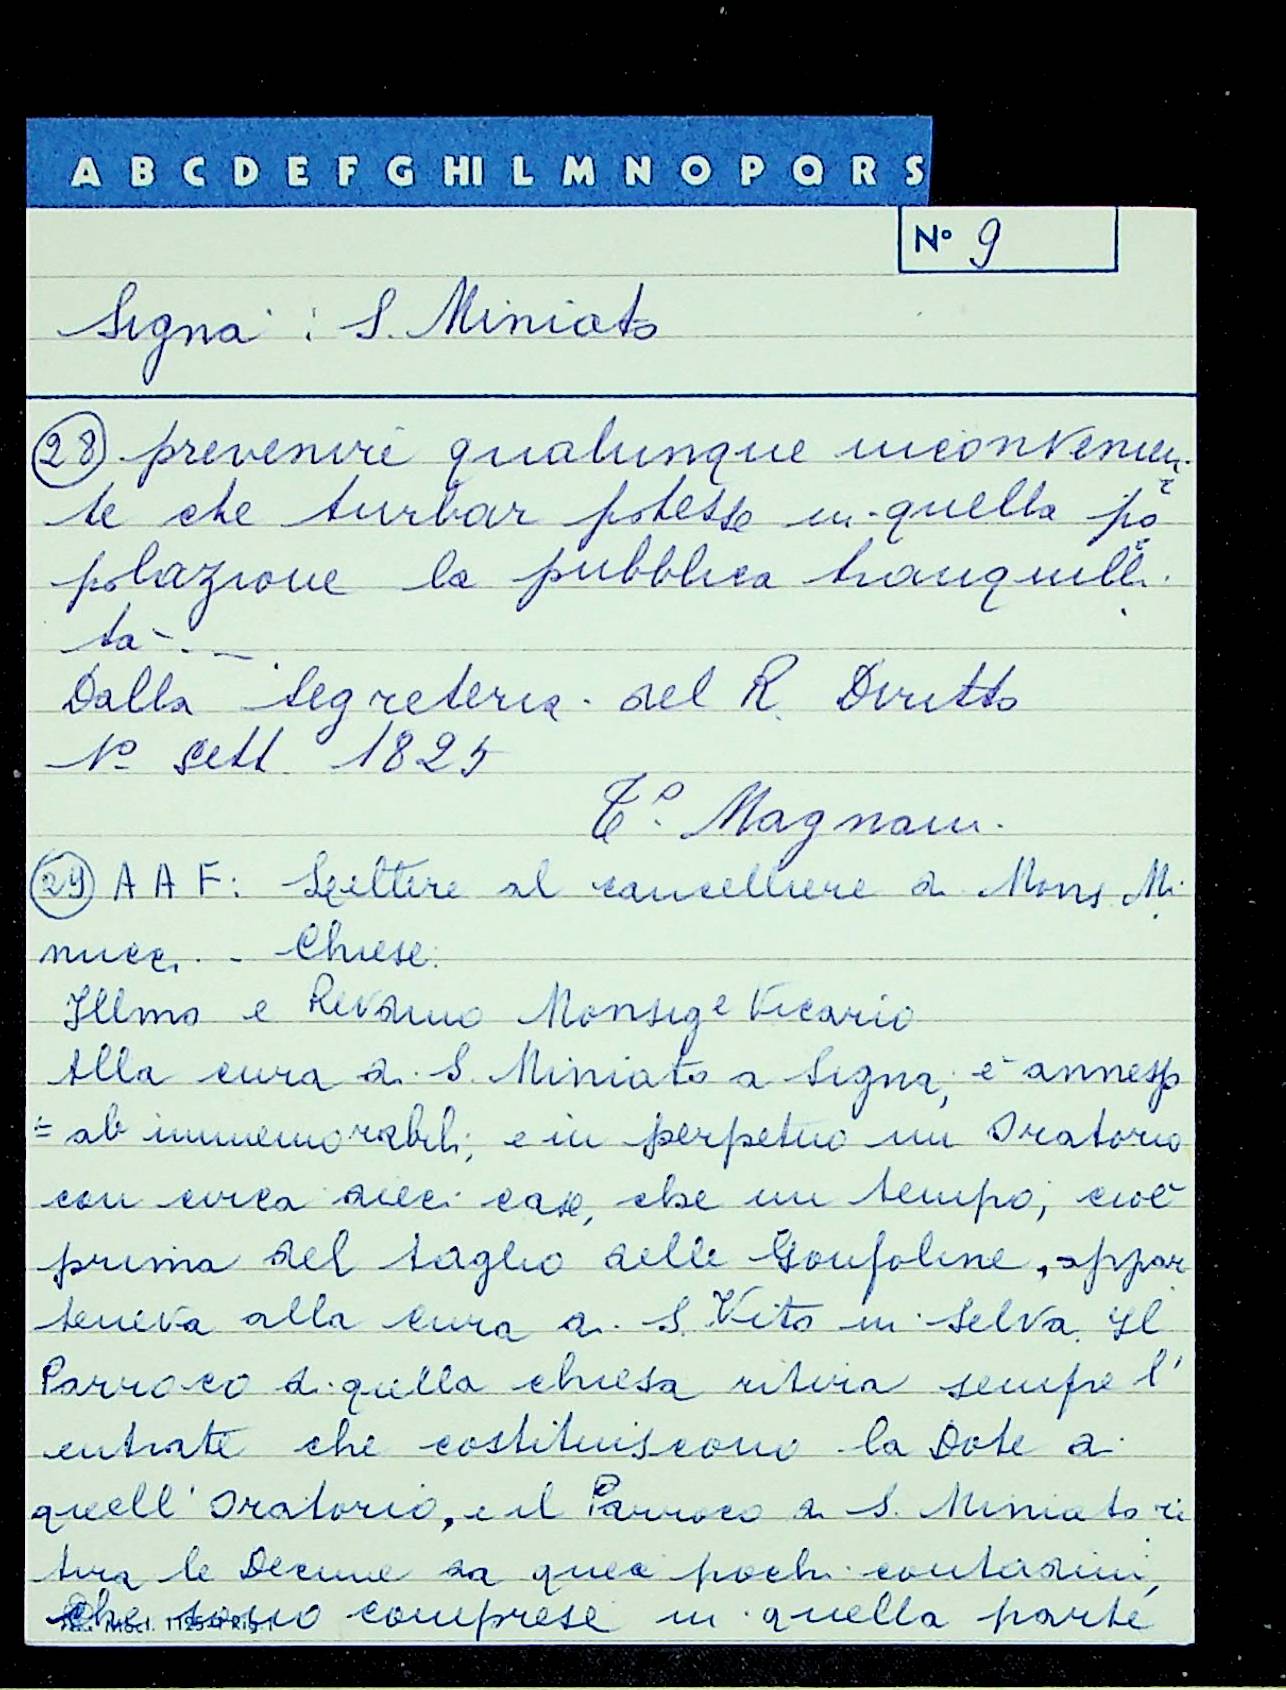 A B C D E F G HI L M N O P Q R S
N° 9
Signa : S. Miniato
28 prevenire qualunque inconvenien-
te che turbar potesse in quella po
polazione la pubblica tranquilli-
tà. -
Dalla Segreteria del R. Diritto
1° Sett. 1825
T° Magnani.
29 A A F: Lettere al cancelliere di Mons Mi
nucci. - Chiese.
Illmo e Revdmo Monsige Vicario
Alla cura di S. Miniato a Signa, è annesso
= ab immemorabili, e in perpetuo un Oratorio
con circa dieci case, che un tempo, cioè
prima del taglio delle Gonfoline, appar
teneva alla cura di S. Vito in Selva. Il
Parroco di quella chiesa ritira sempre l'
entrate che costituiscono la Dote di
quell' Oratorio, e il Parroco di S. Miniato ri
tira le Decime da quei pochi contadini,
che sono comprese in quella parte